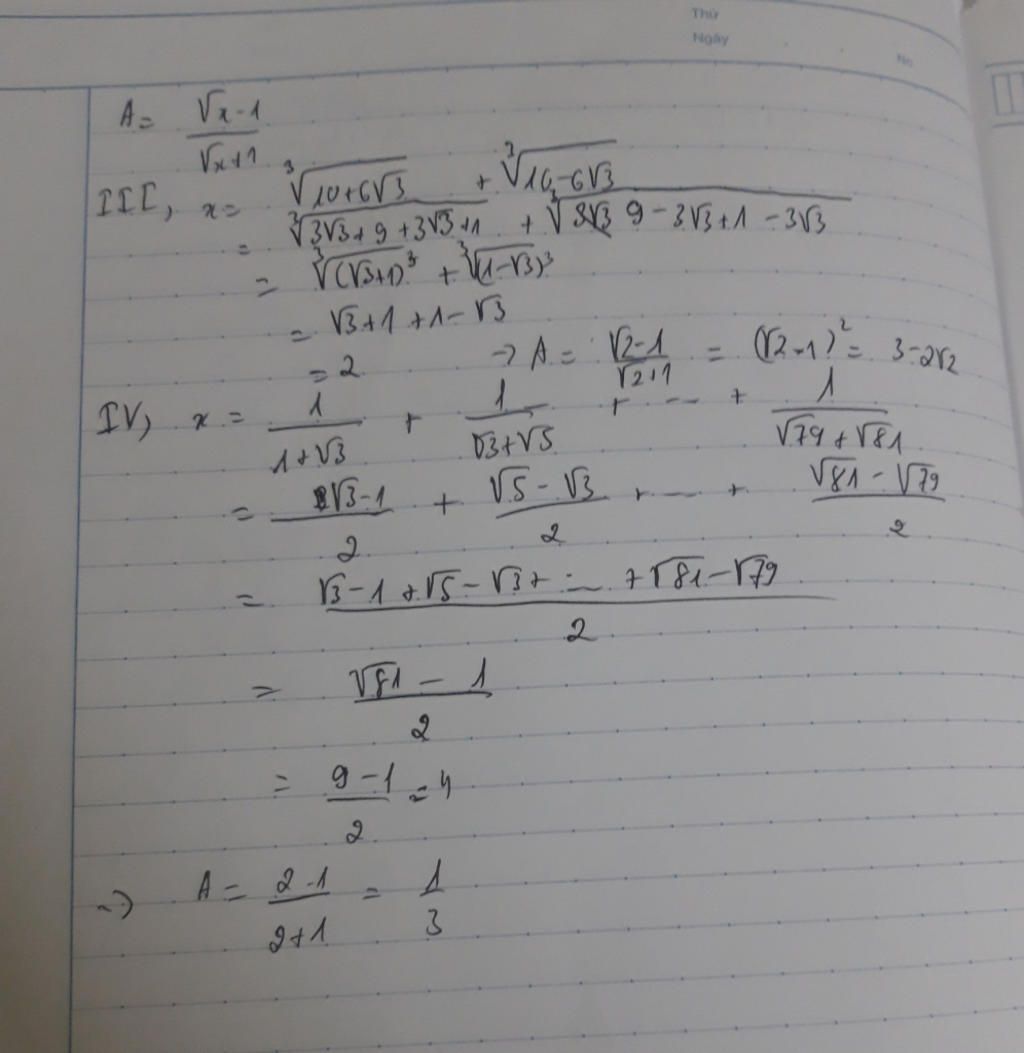 Thứ
Ngày
No
A = (√x - 1)/(√x + 1)
III, x = ∛(10+6√3) + ∛(10-6√3)
= ∛(3√3 + 9 + 3√3 + 1) + ∛(9 - 3√3 + 1 - 3√3)
= ∛((√3+1)³) + ∛((1-√3)³)
= √3 + 1 + 1 - √3
= 2 → A = (√2 - 1)/(√2 + 1) = (√2 - 1)² = 3 - 2√2
IV, x = 1/(1+√3) + 1/(√3+√5) + ... + 1/(√79+√81)
= (√3 - 1)/2 + (√5 - √3)/2 + ... + (√81 - √79)/2
= (√3 - 1 + √5 - √3 + ... + √81 - √79)/2
= (√81 - 1)/2
= (9 - 1)/2 = 4
→ A = (2 - 1)/(2 + 1) = 1/3